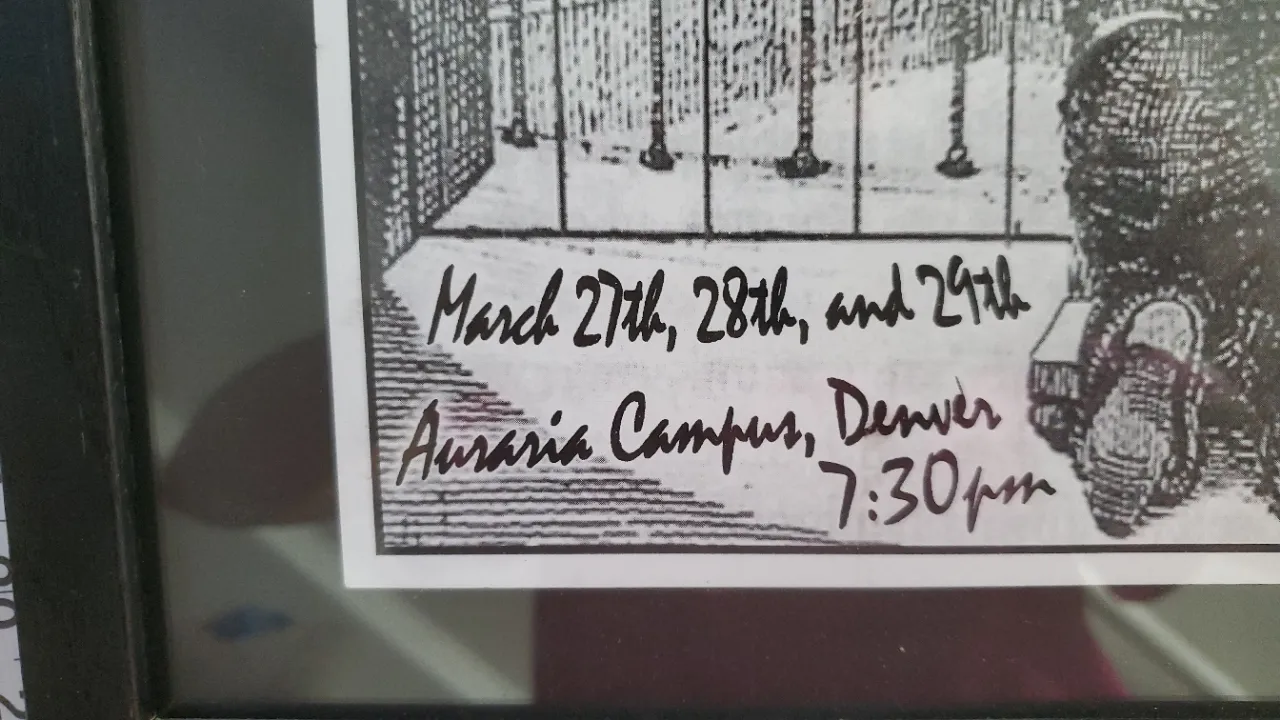 March 27th, 28th, and 29th
Auraria Campus, Denver
7:30pm